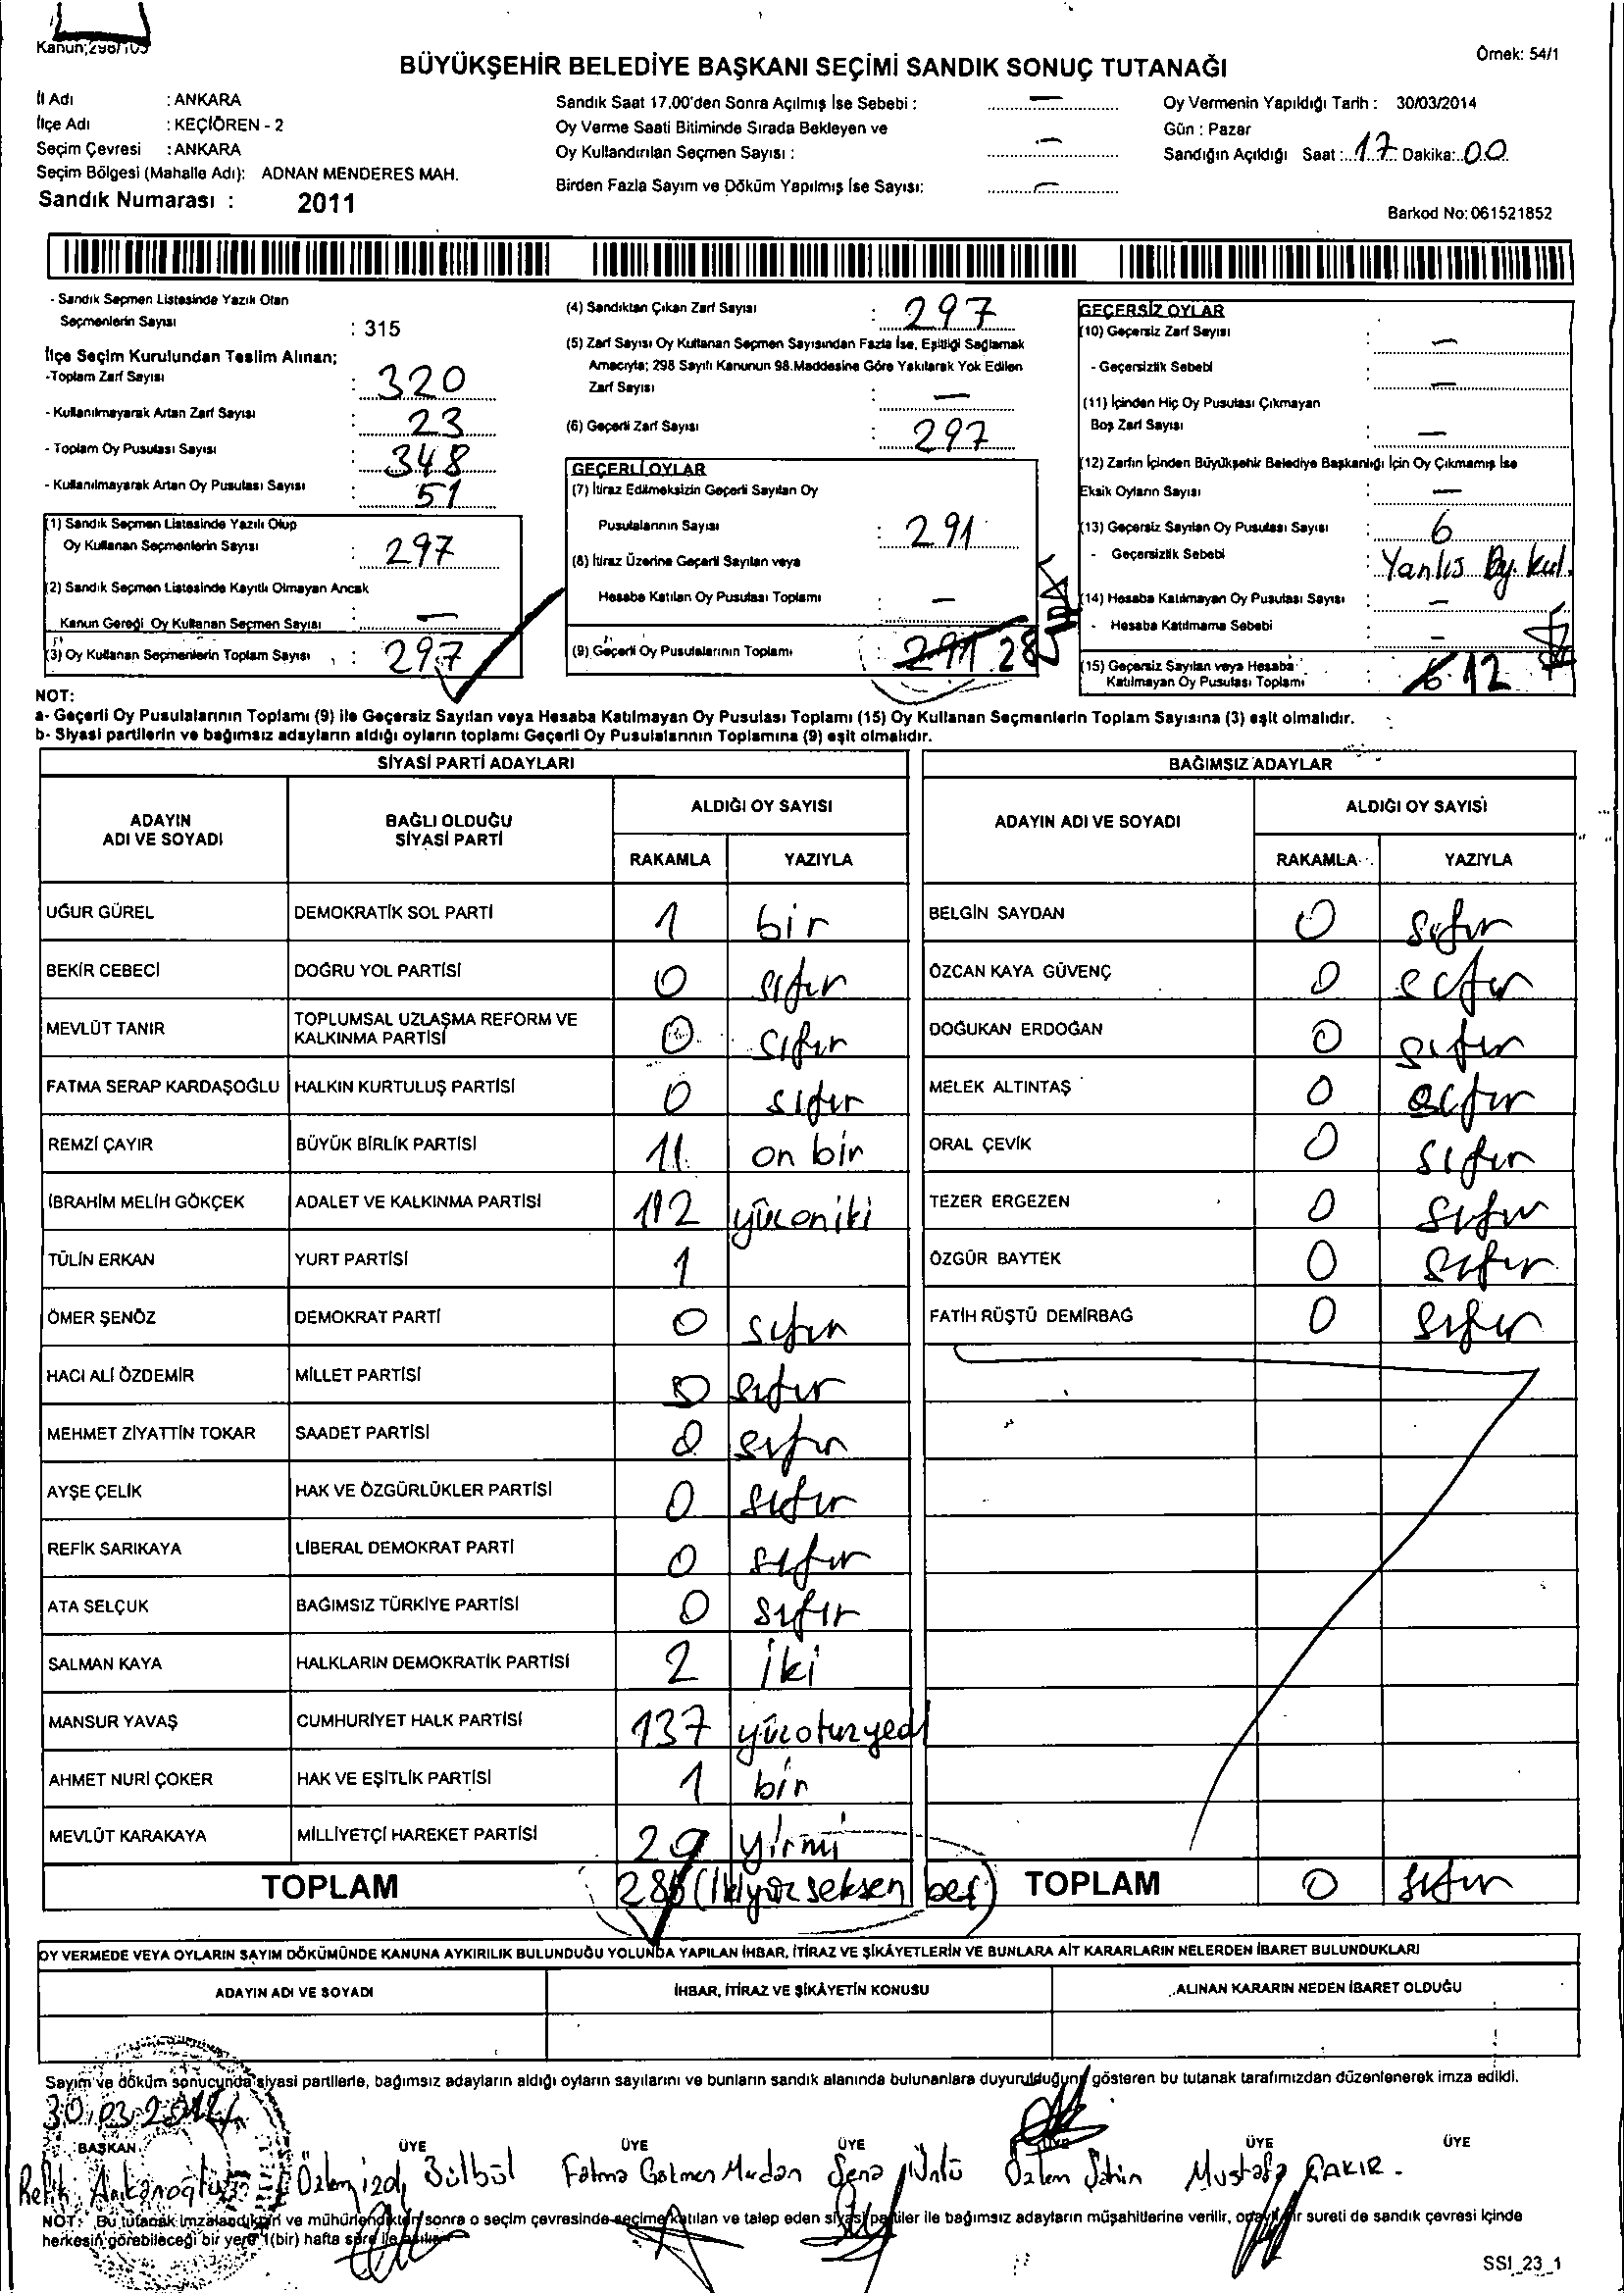 Kanun;298/105
Örnek: 54/1
BÜYÜKŞEHİR BELEDİYE BAŞKANI SEÇİMİ SANDIK SONUÇ TUTANAĞI
İl Adı : ANKARA
İlçe Adı : KEÇİÖREN - 2
Seçim Çevresi : ANKARA
Seçim Bölgesi (Mahalle Adı): ADNAN MENDERES MAH.
Sandık Numarası : 2011
Sandık Saat 17.00'den Sonra Açılmış İse Sebebi : —
Oy Verme Saati Bitiminde Sırada Bekleyen ve
Oy Kullandırılan Seçmen Sayısı : —
Birden Fazla Sayım ve Döküm Yapılmış İse Sayısı: —
Oy Vermenin Yapıldığı Tarih : 30/03/2014
Gün : Pazar
Sandığın Açıldığı Saat : 17 Dakika: 00
Barkod No: 061521852
- Sandık Seçmen Listesinde Yazılı Olan
Seçmenlerin Sayısı : 315
İlçe Seçim Kurulundan Teslim Alınan;
-Toplam Zarf Sayısı : 320
- Kullanılmayarak Artan Zarf Sayısı : 23
- Toplam Oy Pusulası Sayısı : 348
- Kullanılmayarak Artan Oy Pusulası Sayısı : 51
(1) Sandık Seçmen Listesinde Yazılı Olup
Oy Kullanan Seçmenlerin Sayısı : 297
(2) Sandık Seçmen Listesinde Kayıtlı Olmayan Ancak
Kanun Gereği Oy Kullanan Seçmen Sayısı : —
(3) Oy Kullanan Seçmenlerin Toplam Sayısı : 297
(4) Sandıktan Çıkan Zarf Sayısı : 297
(5) Zarf Sayısı Oy Kullanan Seçmen Sayısından Fazla İse, Eşitliği Sağlamak
Amacıyla; 298 Sayılı Kanunun 98.Maddesine Göre Yakılarak Yok Edilen
Zarf Sayısı : —
(6) Geçerli Zarf Sayısı : 297
GEÇERLİ OYLAR
(7) İtiraz Edilmeksizin Geçerli Sayılan Oy
Pusulalarının Sayısı : 291
(8) İtiraz Üzerine Geçerli Sayılan veya
Hesaba Katılan Oy Pusulası Toplamı : —
(9) Geçerli Oy Pusulalarının Toplamı : 291 285
GEÇERSİZ OYLAR
(10) Geçersiz Zarf Sayısı : —
- Geçersizlik Sebebi : —
(11) İçinden Hiç Oy Pusulası Çıkmayan
Boş Zarf Sayısı : —
(12) Zarfın İçinden Büyükşehir Belediye Başkanlığı İçin Oy Çıkmamış İse
Eksik Oyların Sayısı : —
(13) Geçersiz Sayılan Oy Pusulası Sayısı : 6
- Geçersizlik Sebebi : Yanlış Oy. kul.
(14) Hesaba Katılmayan Oy Pusulası Sayısı : —
- Hesaba Katılmama Sebebi : —
(15) Geçersiz Sayılan veya Hesaba
Katılmayan Oy Pusulası Toplamı : 6 12
NOT:
a- Geçerli Oy Pusulalarının Toplamı (9) ile Geçersiz Sayılan veya Hesaba Katılmayan Oy Pusulası Toplamı (15) Oy Kullanan Seçmenlerin Toplam Sayısına (3) eşit olmalıdır.
b- Siyasi partilerin ve bağımsız adayların aldığı oyların toplamı Geçerli Oy Pusulalarının Toplamına (9) eşit olmalıdır.
SİYASİ PARTİ ADAYLARI
ADAYIN ADI VE SOYADI BAĞLI OLDUĞU SİYASİ PARTİ ALDIĞI OY SAYISI
RAKAMLA YAZIYLA
UĞUR GÜREL DEMOKRATİK SOL PARTİ 1 bir
BEKİR CEBECİ DOĞRU YOL PARTİSİ 0 sıfır
MEVLÜT TANIR TOPLUMSAL UZLAŞMA REFORM VE KALKINMA PARTİSİ 0 sıfır
FATMA SERAP KARDAŞOĞLU HALKIN KURTULUŞ PARTİSİ 0 sıfır
REMZİ ÇAYIR BÜYÜK BİRLİK PARTİSİ 11 on bir
İBRAHİM MELİH GÖKÇEK ADALET VE KALKINMA PARTİSİ 112 yüzoniki
TÜLİN ERKAN YURT PARTİSİ 1
ÖMER ŞENÖZ DEMOKRAT PARTİ 0 sıfır
HACI ALİ ÖZDEMİR MİLLET PARTİSİ 0 sıfır
MEHMET ZİYATTİN TOKAR SAADET PARTİSİ 0 sıfır
AYŞE ÇELİK HAK VE ÖZGÜRLÜKLER PARTİSİ 0 sıfır
REFİK SARIKAYA LİBERAL DEMOKRAT PARTİ 0 sıfır
ATA SELÇUK BAĞIMSIZ TÜRKİYE PARTİSİ 0 sıfır
SALMAN KAYA HALKLARIN DEMOKRATİK PARTİSİ 2 iki
MANSUR YAVAŞ CUMHURİYET HALK PARTİSİ 137 yüzotuzyedi
AHMET NURİ ÇOKER HAK VE EŞİTLİK PARTİSİ 1 bir
MEVLÜT KARAKAYA MİLLİYETÇİ HAREKET PARTİSİ 20 yirmi
TOPLAM 285 (İkiyüz seksen beş)
BAĞIMSIZ ADAYLAR
ADAYIN ADI VE SOYADI ALDIĞI OY SAYISI
RAKAMLA YAZIYLA
BELGİN SAYDAN 0 sıfır
ÖZCAN KAYA GÜVENÇ 0 sıfır
DOĞUKAN ERDOĞAN 0 sıfır
MELEK ALTINTAŞ 0 sıfır
ORAL ÇEVİK 0 sıfır
TEZER ERGEZEN 0 sıfır
ÖZGÜR BAYTEK 0 sıfır
FATİH RÜŞTÜ DEMİRBAĞ 0 sıfır
TOPLAM 0 sıfır
OY VERMEDE VEYA OYLARIN SAYIM DÖKÜMÜNDE KANUNA AYKIRILIK BULUNDUĞU YOLUNDA YAPILAN İHBAR, İTİRAZ VE ŞİKÂYETLERİN VE BUNLARA AİT KARARLARIN NELERDEN İBARET BULUNDUKLARI
ADAYIN ADI VE SOYADI İHBAR, İTİRAZ VE ŞİKÂYETİN KONUSU ALINAN KARARIN NEDEN İBARET OLDUĞU
Sayım ve döküm sonucunda siyasi partilerle, bağımsız adayların aldığı oyların sayılarını ve bunların sandık alanında bulunanlara duyurulduğunu gösteren bu tutanak tarafımızdan düzenlenerek imza edildi.
30.03.2014
BAŞKAN ÜYE ÜYE ÜYE ÜYE ÜYE ÜYE
Refik Özlem Bülbül Fatma Sena Ünlü Özlem Şahin Mustafa ÇAKIR
NOT: Bu tutanak imzalandıktan ve mühürlendikten sonra o seçim çevresinde seçime katılan ve talep eden siyasi partiler ile bağımsız adayların müşahitlerine verilir, onaylı bir sureti de sandık çevresi içinde
herkesin görebileceği bir yere 1(bir) hafta süre ile asılır.
SSI_23_1